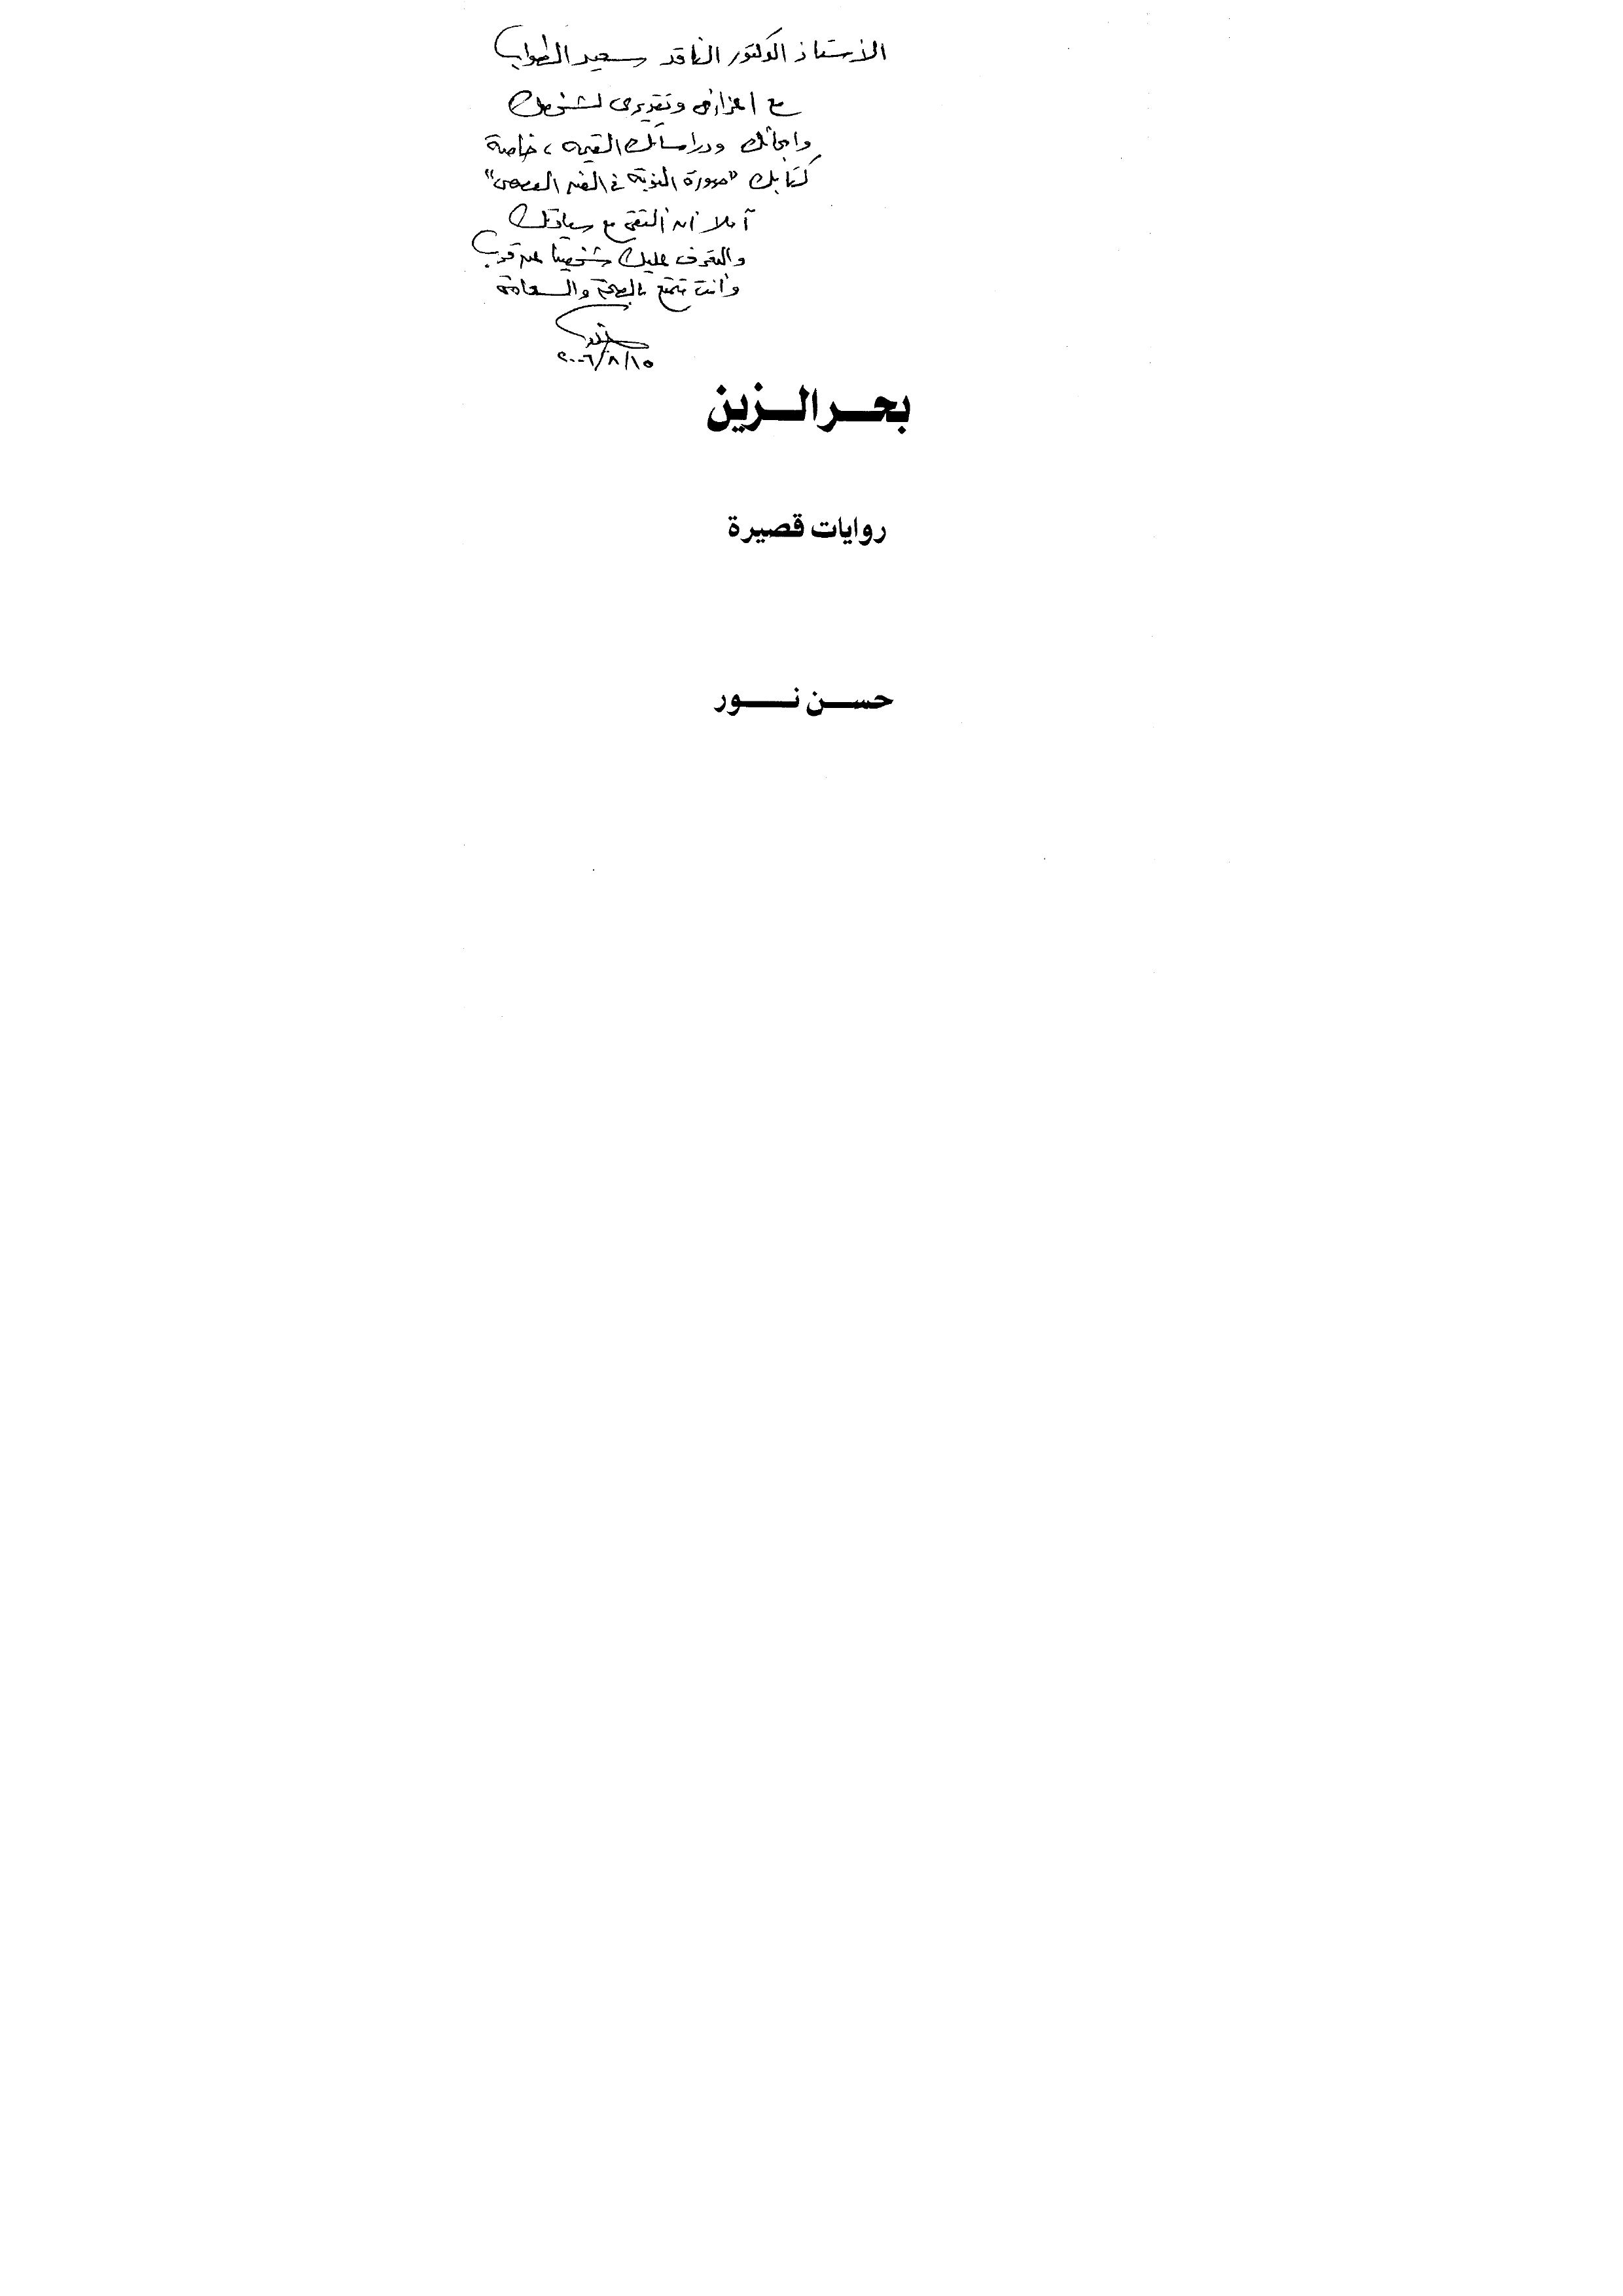 الأستاذ الدكتور الناقد سعيد الطواب
مع اعزازى وتقديرى لشخصك
وابحاثك ودراساتك القيمه ، خاصة
كتابك "صورة النوبة فى الفن القصصى"
آملا أن ألتقى مع سيادتك
والتعرف عليك شخصيًا عن قرب
وأنت تتمتع بالصحة والسعادة
٢٠٠٦/٨/١٥
بحر الزين
روايات قصيرة
حسن نور